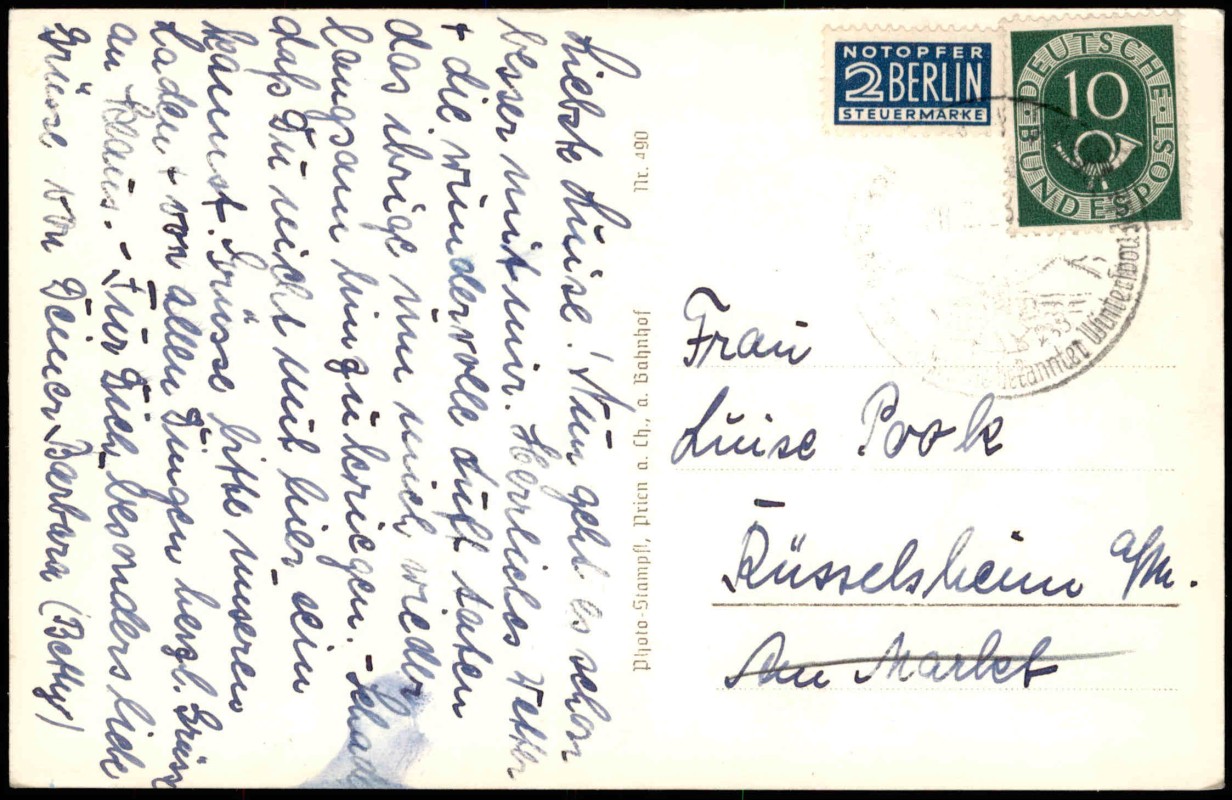 Liebste Luise! Nun geht es schon
besser mit mir. Herrliches Wetter
+ die wundervolle Luft taten
das ihrige um mich wieder
langsam hinzukriegen. - Schade
daß Du nicht mit hier sein
kannst. Grüsse bitte unseren
Laden + von allen Dingen herzl. Grüsse
an Klaus. - Für Dich besonders liebe
Grüsse von Deiner Barbara (Betty)
Photo-Stampfl, Prien a. Ch., a. Bahnhof
Nr. 490
NOTOPFER
2 BERLIN
STEUERMARKE
DEUTSCHE
10
BUNDESPOST
bekannter Wintersport
53
Frau
Luise Pook
Rüsselsheim a/M.
Am Markt